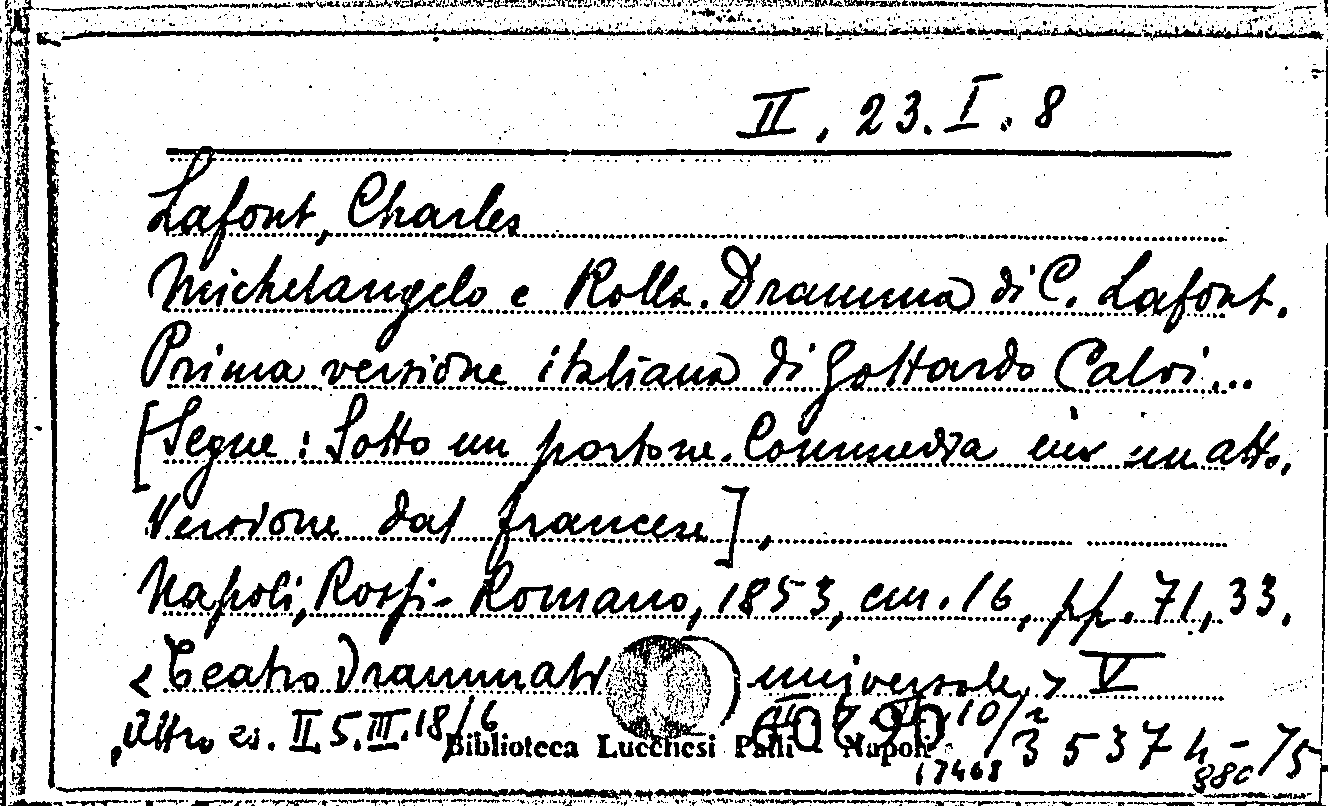 II. 23. I. 8
Lafont, Charles
Michelangelo e Rolla. Dramma di C. Lafont.
Prima versione italiana di Gottardo Calvi...
[Segue: Sotto un portone. Commedia in un atto.
Versione dal francese],
Napoli, Rossi-Romano, 1853, cm. 16, pp. 71, 33.
<Teatro Drammati universale> V
Altro es. II. 5. III. 18/6
Biblioteca Lucchesi Palli - Napoli
17468